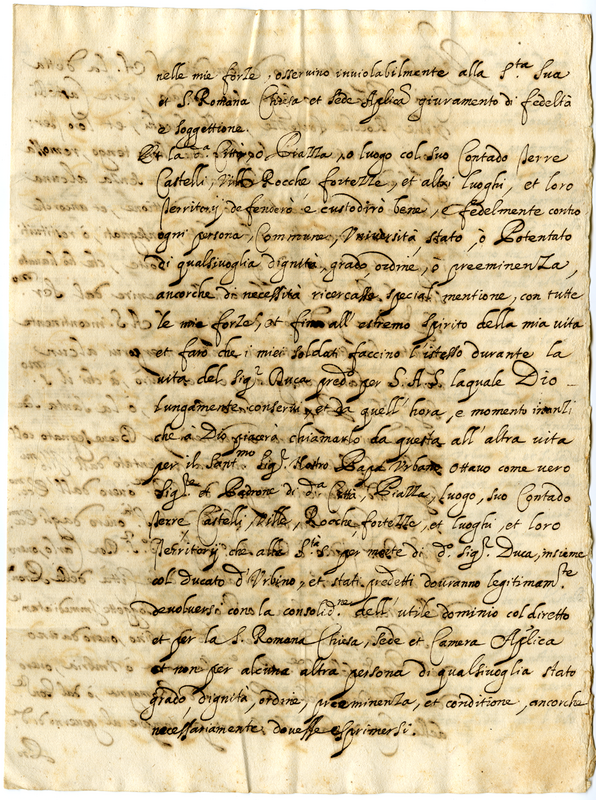 nelle mie forze, osseruino inuiolabilmente alla S.ta Sua
et S. Romana Chiesa et Sede Aplica giuramento di fedeltà
e soggettione.
Et la d.a Città, ò Piazza, o luogo col suo Contado Terre
Castelli, Ville Rocche fortezze, et altri luoghi, et loro
Territorij defenderò è custodirò bene, e fedelmente contro
ogni persona, Commune, Vniuersità, stato, ò Potentato
di qualsiuoglia dignità, grado, ordine, ò preeminenza,
ancorche di necessità ricercasse special mentione, con tutte
le mie forze, et fino all' estremo spirito della mia vita
et farò che i miei soldati faccino l'istesso durante la
vita del Sig.r Duca pred.o per S. A. S. laquale Dio
lungamente conserui, et da quell' hora, e momento inanzi
che à Dio piacerà chiamarlo da questa all' altra vita
per il Sant.mo Sig.r Nostro Papa Vrbano ottauo come vero
Sig.re et Padrone di d.a Città, Piazza, luogo, suo Contado
Terre Castelli, Ville, Rocche, fortezze, et luoghi, et loro
Territorij che alla S.tà S. per morte di d.o Sig.r Duca, insieme
col Ducato d'Vrbino, et stati predetti douranno legitimam.te
deuoluersi con la consolid.ne dell' utile dominio col diretto
et per la S. Romana Chiesa, Sede et Camera Aplica
et non per alcuna altra persona di qualsiuoglia stato
grado, dignità, ordine, preeminenza, et conditione, ancorche
necessariamente douesse esprimersi.